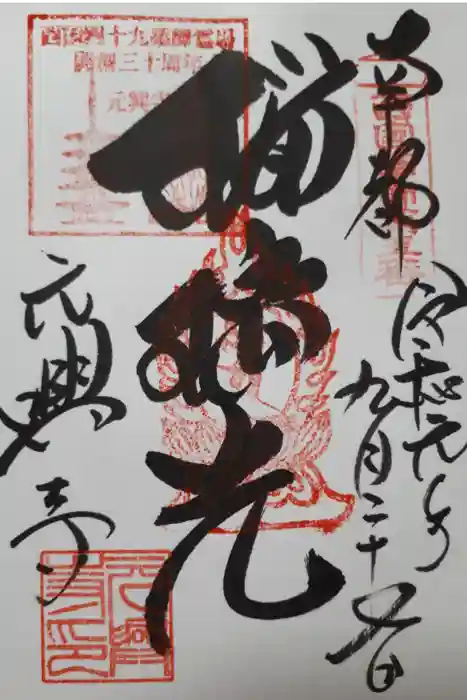 南都
令和元年
九月二十
日
瑠璃光
元興寺
西国四十九薬師霊場
開創三十周年
元興寺